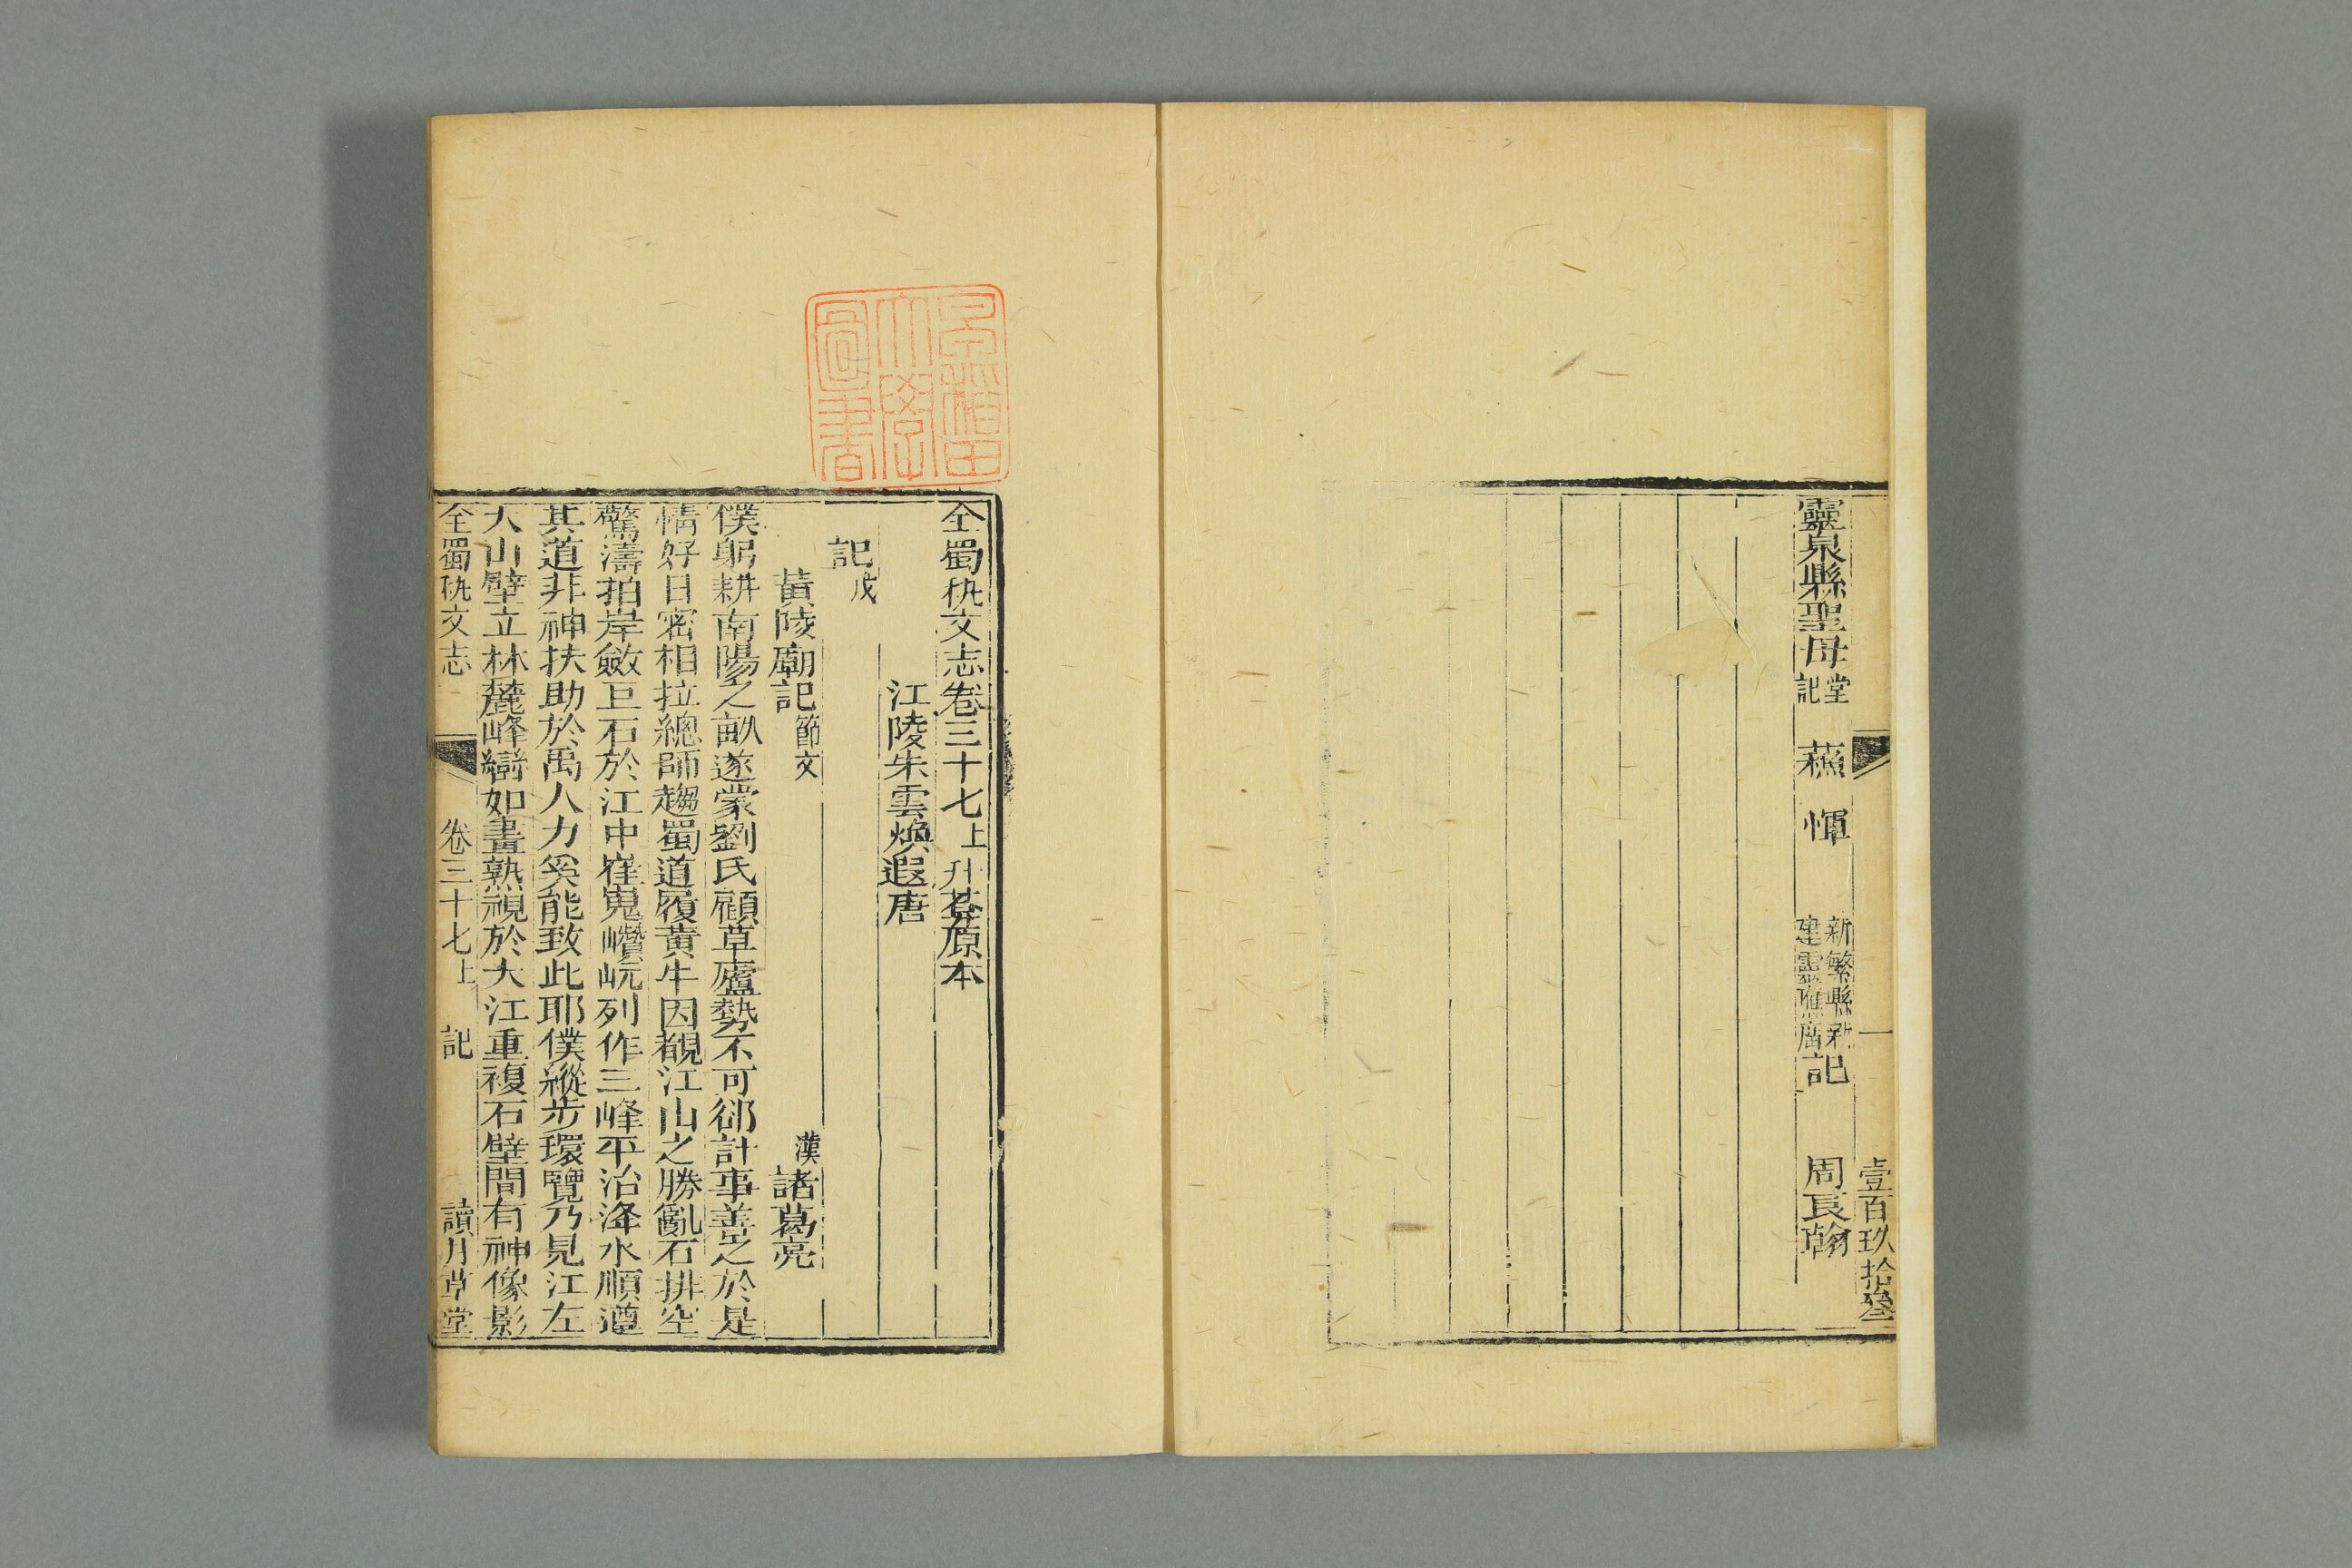 壹百玖拾叄
靈泉縣聖母堂記 蘇惲 新繁縣新建靈應廟記 周長翰
早稻田大學圖書
全蜀秇文志卷三十七上 升菴原本
江陵朱雲煥遐唐
記戊
黃陵廟記節文 漢諸葛亮
僕躬耕南陽之畝遂蒙劉氏顧草廬勢不可郤計事善之於是
情好日密相拉總師趨蜀道履黃牛因覩江山之勝亂石排空
驚濤拍岸斂巨石於江中崔嵬巑岏列作三峰平治洚水順遵
其道非神扶助於禹人力奚能致此耶僕縱步環覽乃見江左
大山壁立林麓峰巒如畫熟視於大江重複石壁間有神像影
全蜀秇文志 卷三十七上 記 讀月草堂